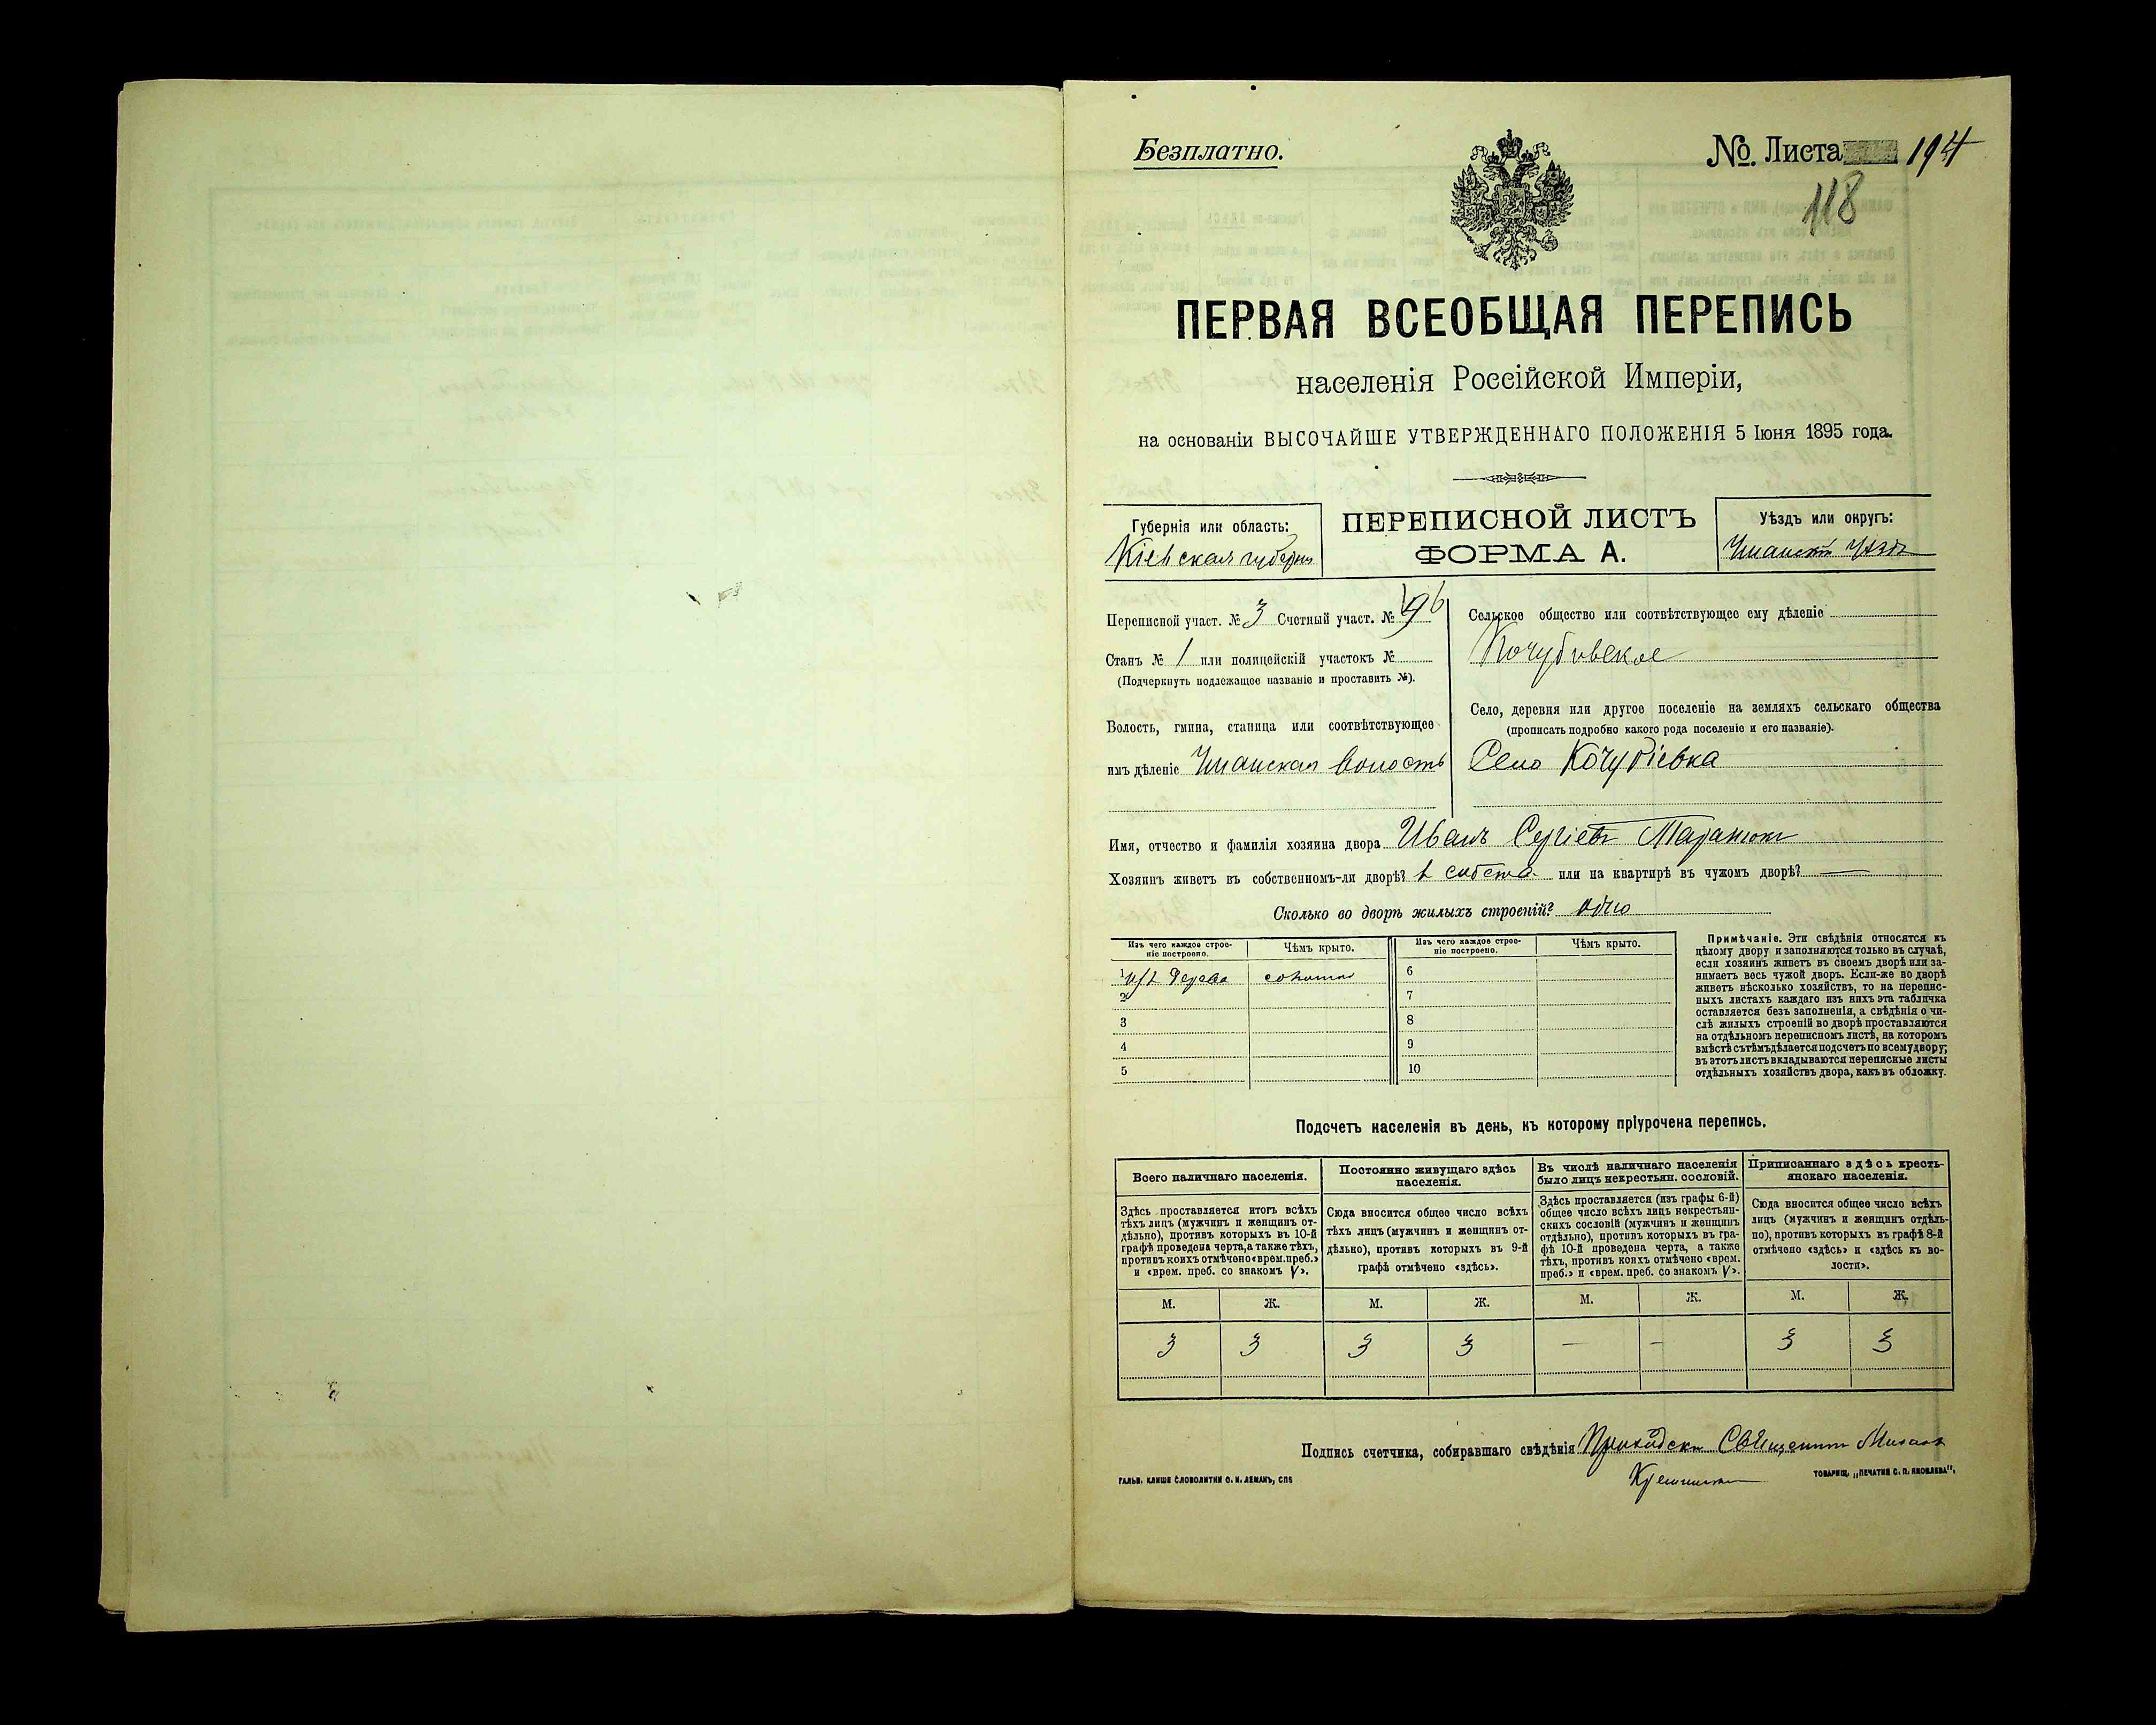 Безплатно.
№. Листа 194
118
ПЕРВАЯ ВСЕОБЩАЯ ПЕРЕПИСЬ
населенія Россійской Имперіи,
на основаніи ВЫСОЧАЙШЕ УТВЕРЖДЕННАГО ПОЛОЖЕНІЯ 5 Іюня 1895 года.
Губернія или область:
Кіевская губерня
ПЕРЕПИСНОЙ ЛИСТЪ
ФОРМА А.
Уѣздъ или округъ:
Уманскій Уѣздъ
Переписной участ. № 3 Счетный участ. № 96
Станъ № 1 или полицейскій участокъ №
(Подчеркнуть подлежащее названіе и проставить №).
Волость, гмина, станица или соотвѣтствующее
имъ дѣленіе Уманская волость
Сельское общество или соотвѣтствующее ему дѣленіе
Кочубивское
Село, деревня или другое поселеніе на земляхъ сельскаго общества
(прописать подробно какого рода поселеніе и его названіе).
Село Кочубіевка
Имя, отчество и фамилія хозяина двора Иванъ Сергіевъ Таранюкъ
Хозяинъ живетъ въ собственномъ-ли дворѣ? в собств. или на квартирѣ въ чужомъ дворѣ? —
Сколько во дворѣ жилыхъ строеній? одно
Изъ чего каждое строе-
ніе построено.
Чѣмъ крыто.
Изъ чего каждое строе-
ніе построено.
Чѣмъ крыто.
1 изъ дерева соломою 6
2 7
3 8
4 9
5 10
Примѣчаніе. Эти свѣдѣнія относятся къ
цѣлому двору и заполняются только въ случаѣ,
если хозяинъ живетъ въ своемъ дворѣ или за-
нимаетъ весь чужой дворъ. Если-же во дворѣ
живетъ нѣсколько хозяйствъ, то на перепис-
ныхъ листахъ каждаго изъ нихъ эта табличка
оставляется безъ заполненія, а свѣдѣнія о чи-
слѣ жилыхъ строеній во дворѣ проставляются
на отдѣльномъ переписномъ листѣ, на которомъ
вмѣстѣ съ тѣмъ дѣлается подсчетъ по всему двору;
въ этотъ листъ вкладываются переписные листы
отдѣльныхъ хозяйствъ двора, какъ въ обложку.
Подсчетъ населенія въ день, къ которому пріурочена перепись.
Всего наличнаго населенія.
Здѣсь проставляется итогъ всѣхъ
тѣхъ лицъ (мужчинъ и женщинъ от-
дѣльно), противъ которыхъ въ 10-й
графѣ проведена черта, а также тѣхъ,
противъ коихъ отмѣчено «врем. преб.»
и «врем. преб. со знакомъ V».
Постоянно живущаго здѣсь
населенія.
Сюда вносится общее число всѣхъ
тѣхъ лицъ (мужчинъ и женщинъ от-
дѣльно), противъ которыхъ въ 9-й
графѣ отмѣчено «здѣсь».
Въ числѣ наличнаго населенія
было лицъ некрестьян. сословій.
Здѣсь проставляется (изъ графы 6-й)
общее число всѣхъ лицъ некрестьян-
скихъ сословій (мужчинъ и женщинъ
отдѣльно), противъ которыхъ въ гра-
фѣ 10-й проведена черта, а также
тѣхъ, противъ коихъ отмѣчено «врем.
преб.» и «врем. преб. со знакомъ V».
Приписаннаго здѣсь кресть-
янскаго населенія.
Сюда вносится общее число всѣхъ
лицъ (мужчинъ и женщинъ отдѣль-
но), противъ которыхъ въ графѣ 8-й
отмѣчено «здѣсь» и «здѣсь къ во-
лости».
М. Ж. М. Ж. М. Ж. М. Ж.
3 3 3 3 — — 3 3
Подпись счетчика, собиравшаго свѣдѣнія Приходскій Священникъ Михаилъ
ГАЛЬВ. КЛИШЕ СЛОВОЛИТНИ О. И. ЛЕМАНЪ, СПБ
ТОВАРИЩ. „ПЕЧАТНЯ С. П. ЯКОВЛЕВА".